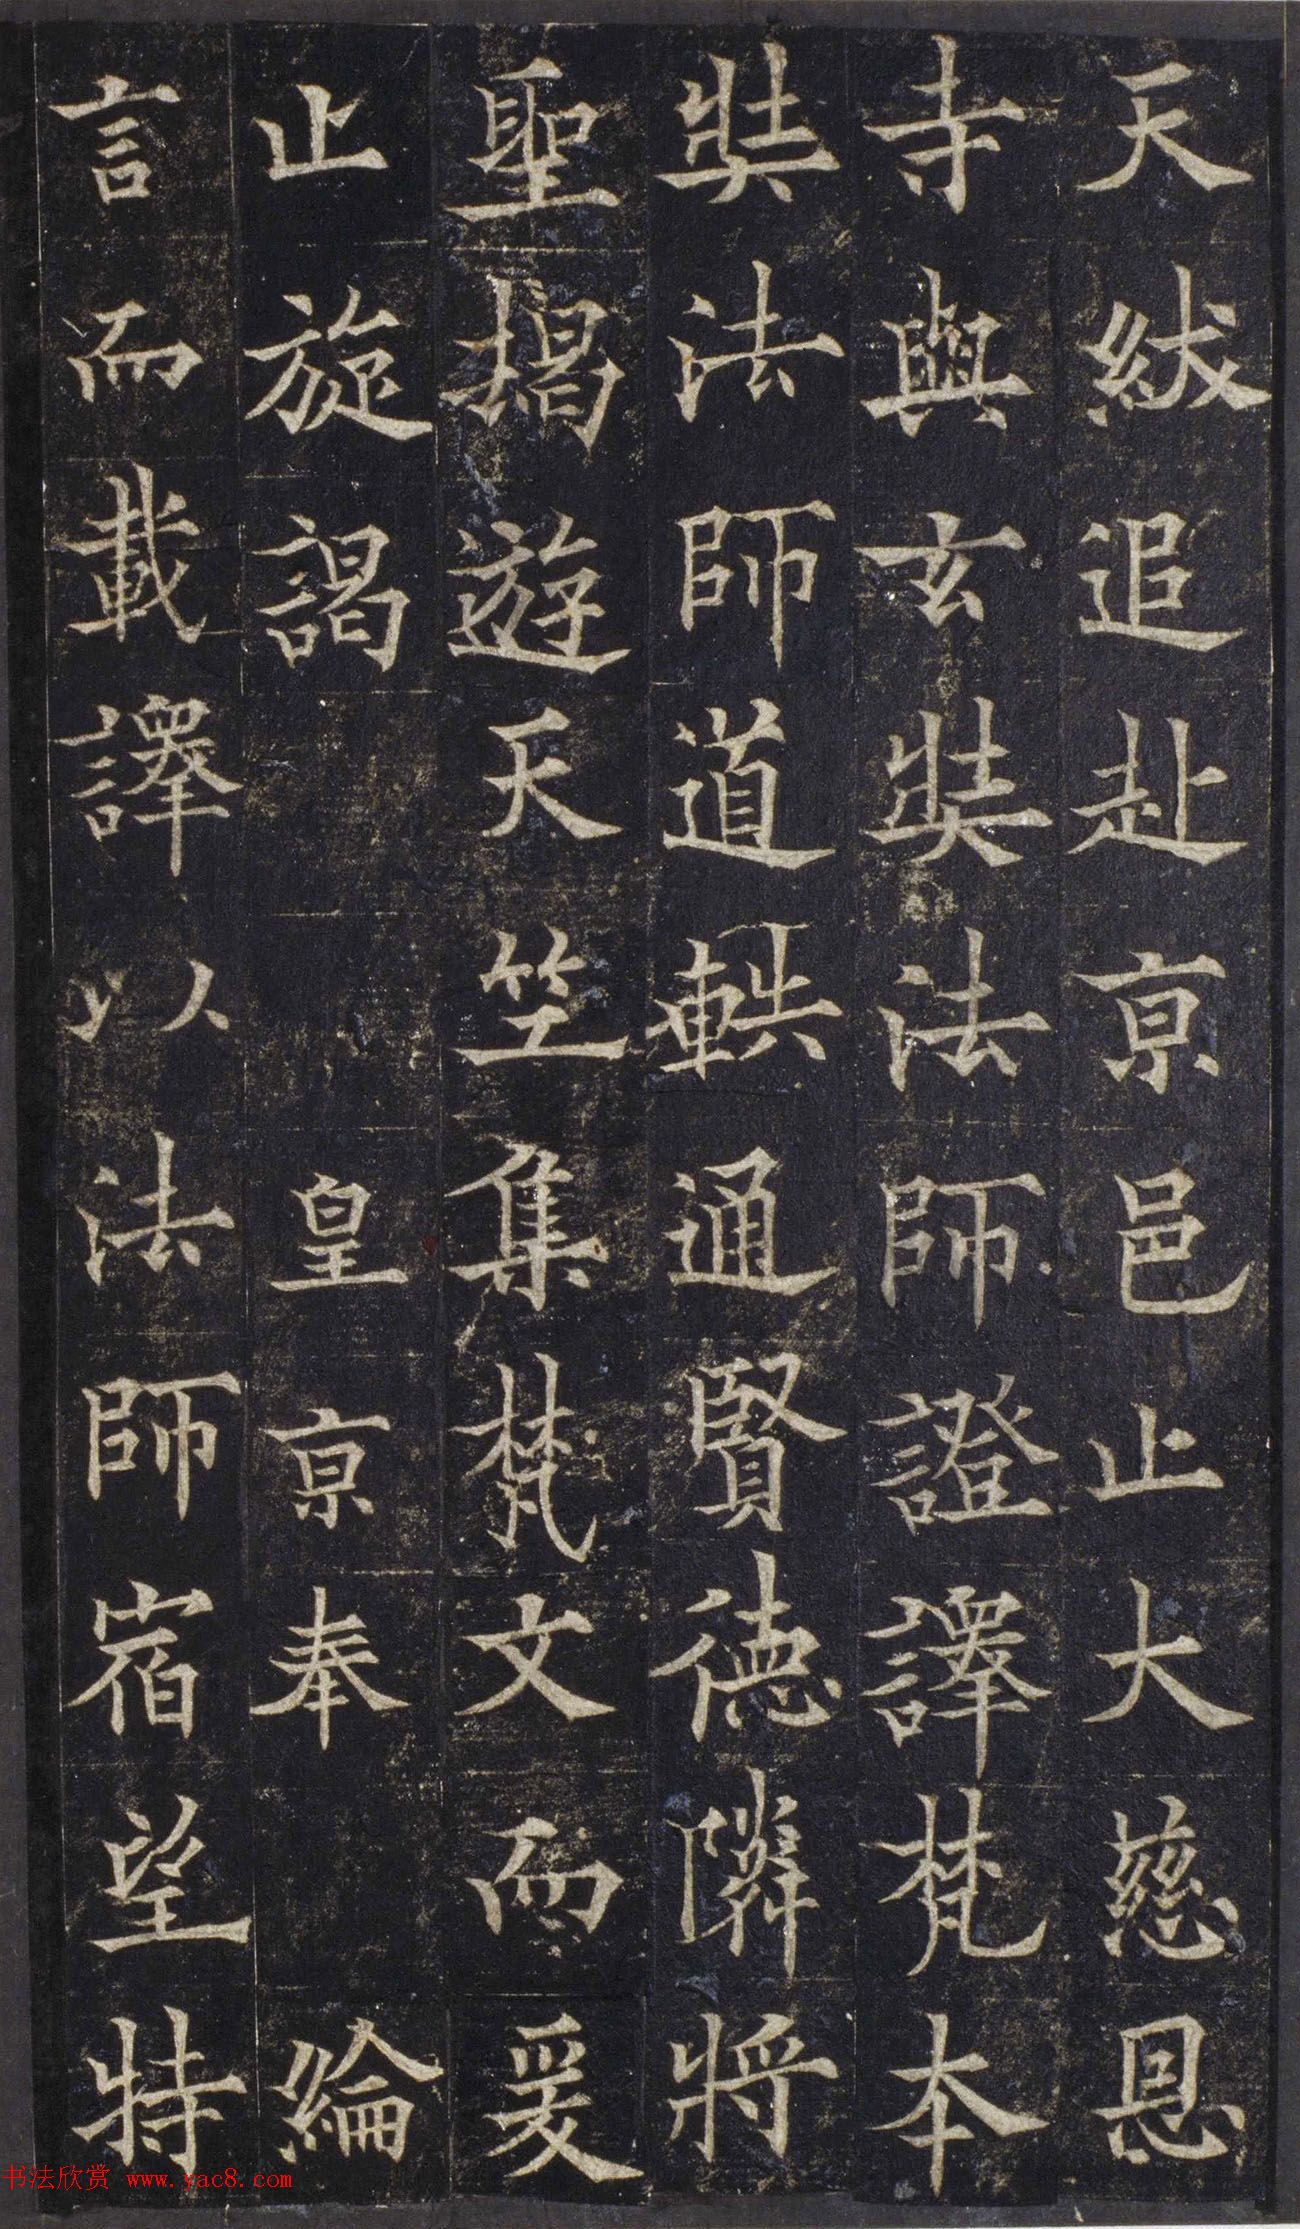 天紱追赴京邑止大慈恩
寺與玄奘法師證譯梵本
奘法師道軼通賢德隣將
聖揭遊天竺集梵文而爰
止旋謁皇京奉綸
言而載譯以法師宿望特
书法欣赏 www.yac8.com